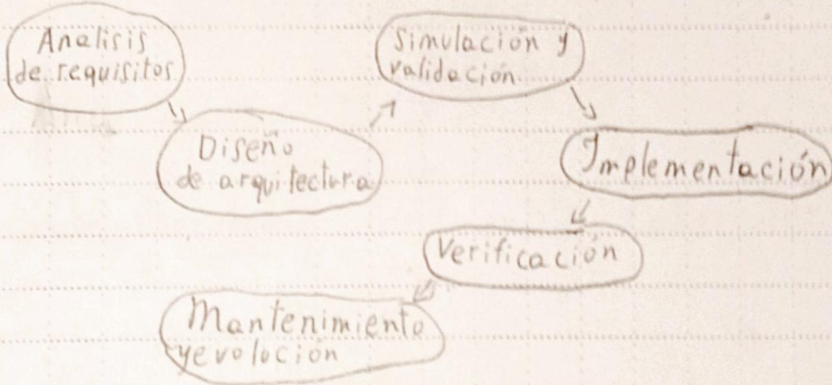 Analisis
de requisitos
Diseño
de arquitectura
Simulación y
validación
Implementación
Verificación
Mantenimiento
y evolución